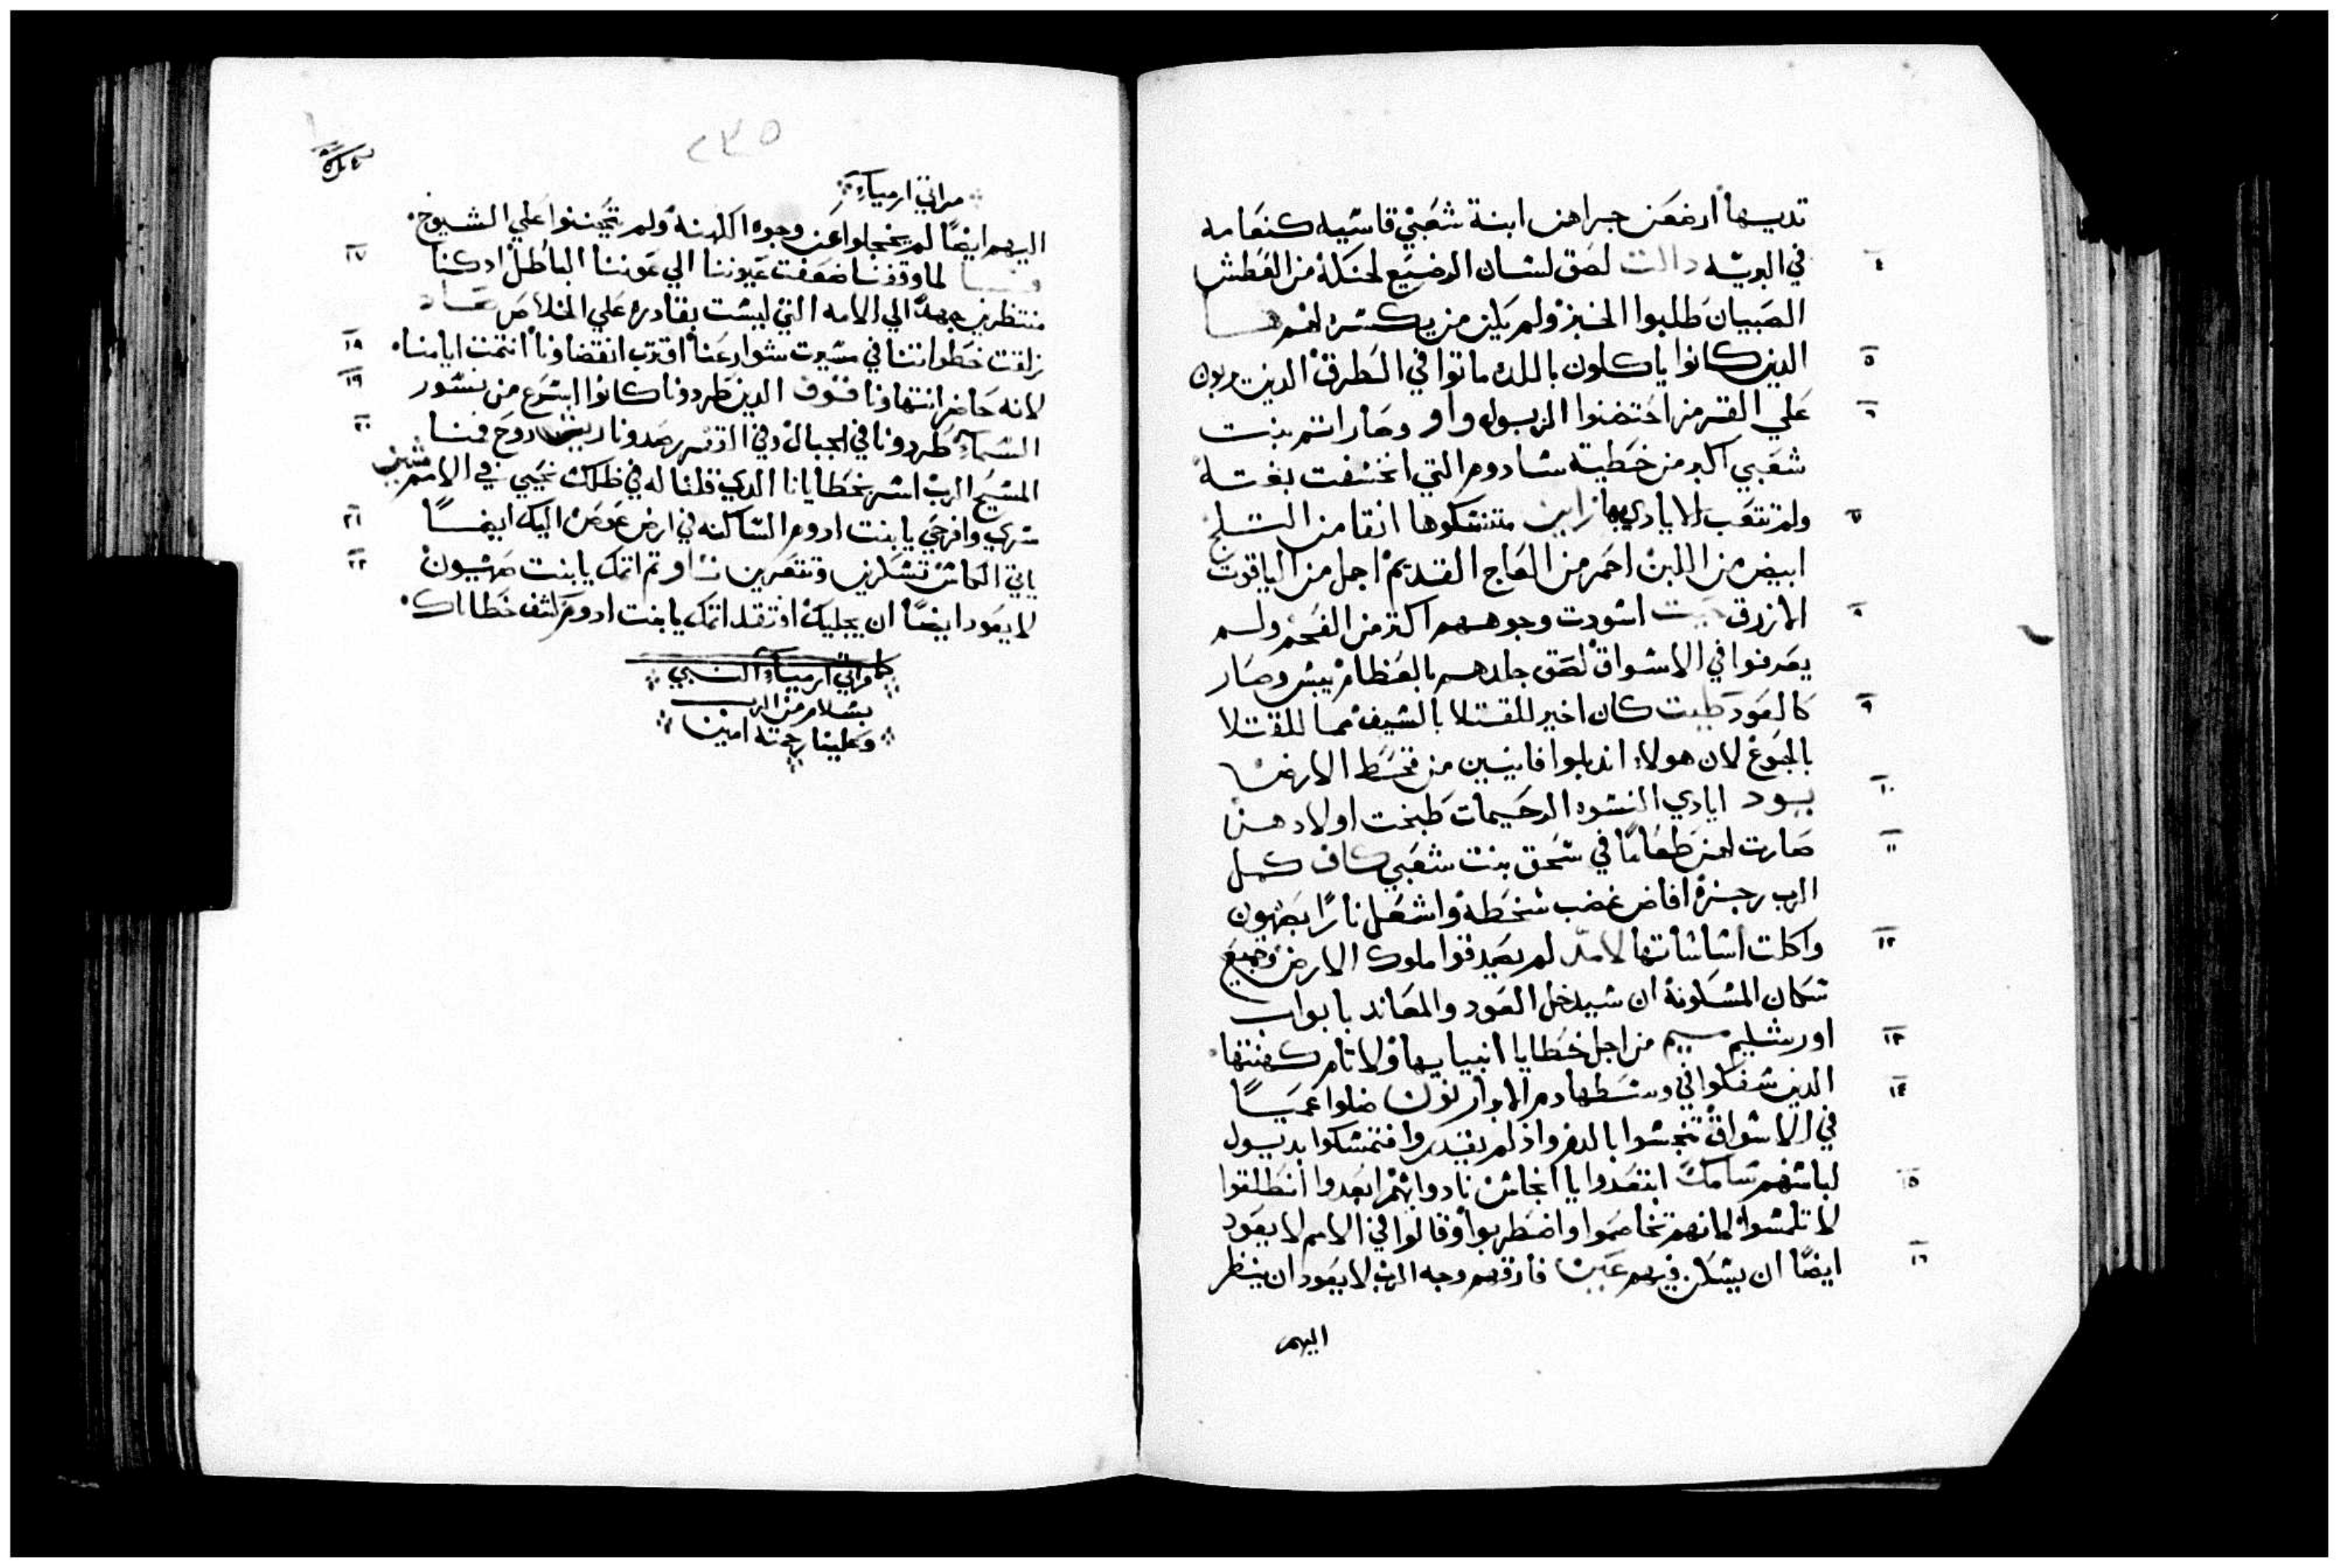 تديها ارضعن جراهن ابنة شعبي قاسيه كنعامه
في البريه دالت لصق لسان الرضيع لحنكه من العطش ٤
الصبيان طلبوا الخبز ولم يكن من يكسره لهم
الذين كانوا ياكلون باللذه ماتوا في الطرق الذين ٥
علي القرمز احتضنوا الزبول واو وصار اتم بنت ٦
شعبي اكبر من خطية سادوم التي انخسفت بغتة
ولم تتعب الايادي بها زاين متنسكوها انقا من الثلج ٧
ابيض من اللبن احمر من العاج القديم اجمل من الياقوت
الازرق اسودت وجوههم اكتر من الفحم ولم ٨
يعرفوا في الاسواق لصق جلدهم بالعظام يبس وصار
كالعود طيت كان اخير للقتلا بالسيف مما للقتلا ٩
بالجوع لان هولاء اندبلوا فانيين من قحط الارض
يود ايادي النسوه الرحيمات طبخت اولادهن ١٠
صارت لهن طعاما في سحق بنت شعبي كاف كمل ١١
الرب رجزه افاض غضب سخطه واشعل نارًا بصهيون
واكلت اساساتها لامد لم يصدقوا ملوك الارض وجميع ١٢
سكان المسكونة ان سيدخل العدو والمعاند بابواب
اورشليم ميم من اجل خطايا انبيايها ولاثام كهنتها ١٣
الذين سفكوا في وسطها دم الابرار نون ضلوا عميًا ١٤
في الاسواق تنجسوا بالدم واذ لم يقدروا فتمسكوا بديول
لباسهم سامك ابتعدوا يا انجاس نادوا بهم ابعدوا انطلقوا ١٥
لا تلمسوا لانهم تخاصموا واضطربوا وقالوا في الامم لا يعود
ايضًا ان يسكن فيهم عين فارقهم وجه الرب لا يعود ان ينظر ١٦
اليهم
٢٣٥
مراتي ارمياء
اليهم ايضًا لم يخجلوا عن وجوه الكهنه ولم يتحننوا علي الشيوخ
لما وقفنا ضعفت عيوننا الي عوننا الباطل اذ كنا ١٧
منتظرين جهدًا الي الامه التي ليست بقادره علي الخلاص
زلقت خطواتنا في مسيرت شوارعنا اقترب انقضاونا اتمت ايامنا ١٨
لانه حاضر انتهاونا قوف الذين طردونا كانوا اسرع من نسور ١٩
السماء طردونا في الجبال وفي رصدونا ريش روح فمنا ٢٠
المسيح الرب اسر بخطايانا الذي قلنا له في ظلك نحيي في الامم شين
سري وافرحي يا بنت ادوم الساكنه في ارض عوص اليك ايضًا ٢١
ياتي الكاس تسكرين وتتعرين تاو تم اتمك يا بنت صهيون ٢٢
لا يعود ايضًا ان يجليك افتقد اتمك يا بنت ادوم كشف خطاياك
مراتي ارمياء النبي
بسلام من الرب
وعلينا رحمته امين